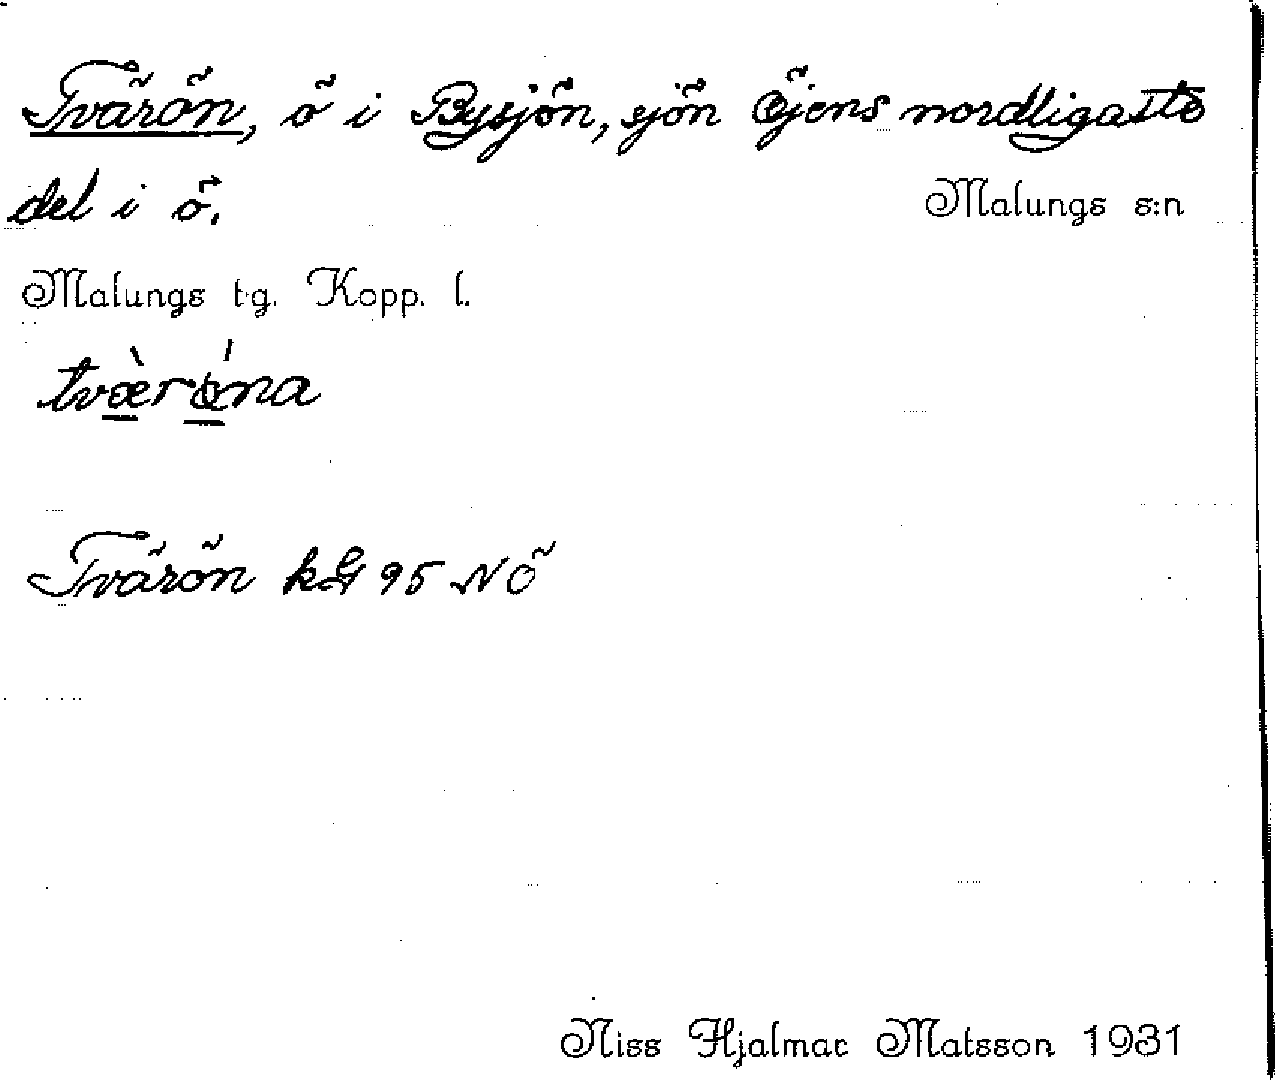 Tvärön, ö i Bysjön, sjön Öjens nordligaste
del i ö.
Malungs s:n
Malungs tg. Kopp. l.
tværöna
Tvärön kG 95 NÖ
Niss Hjalmar Matsson 1931